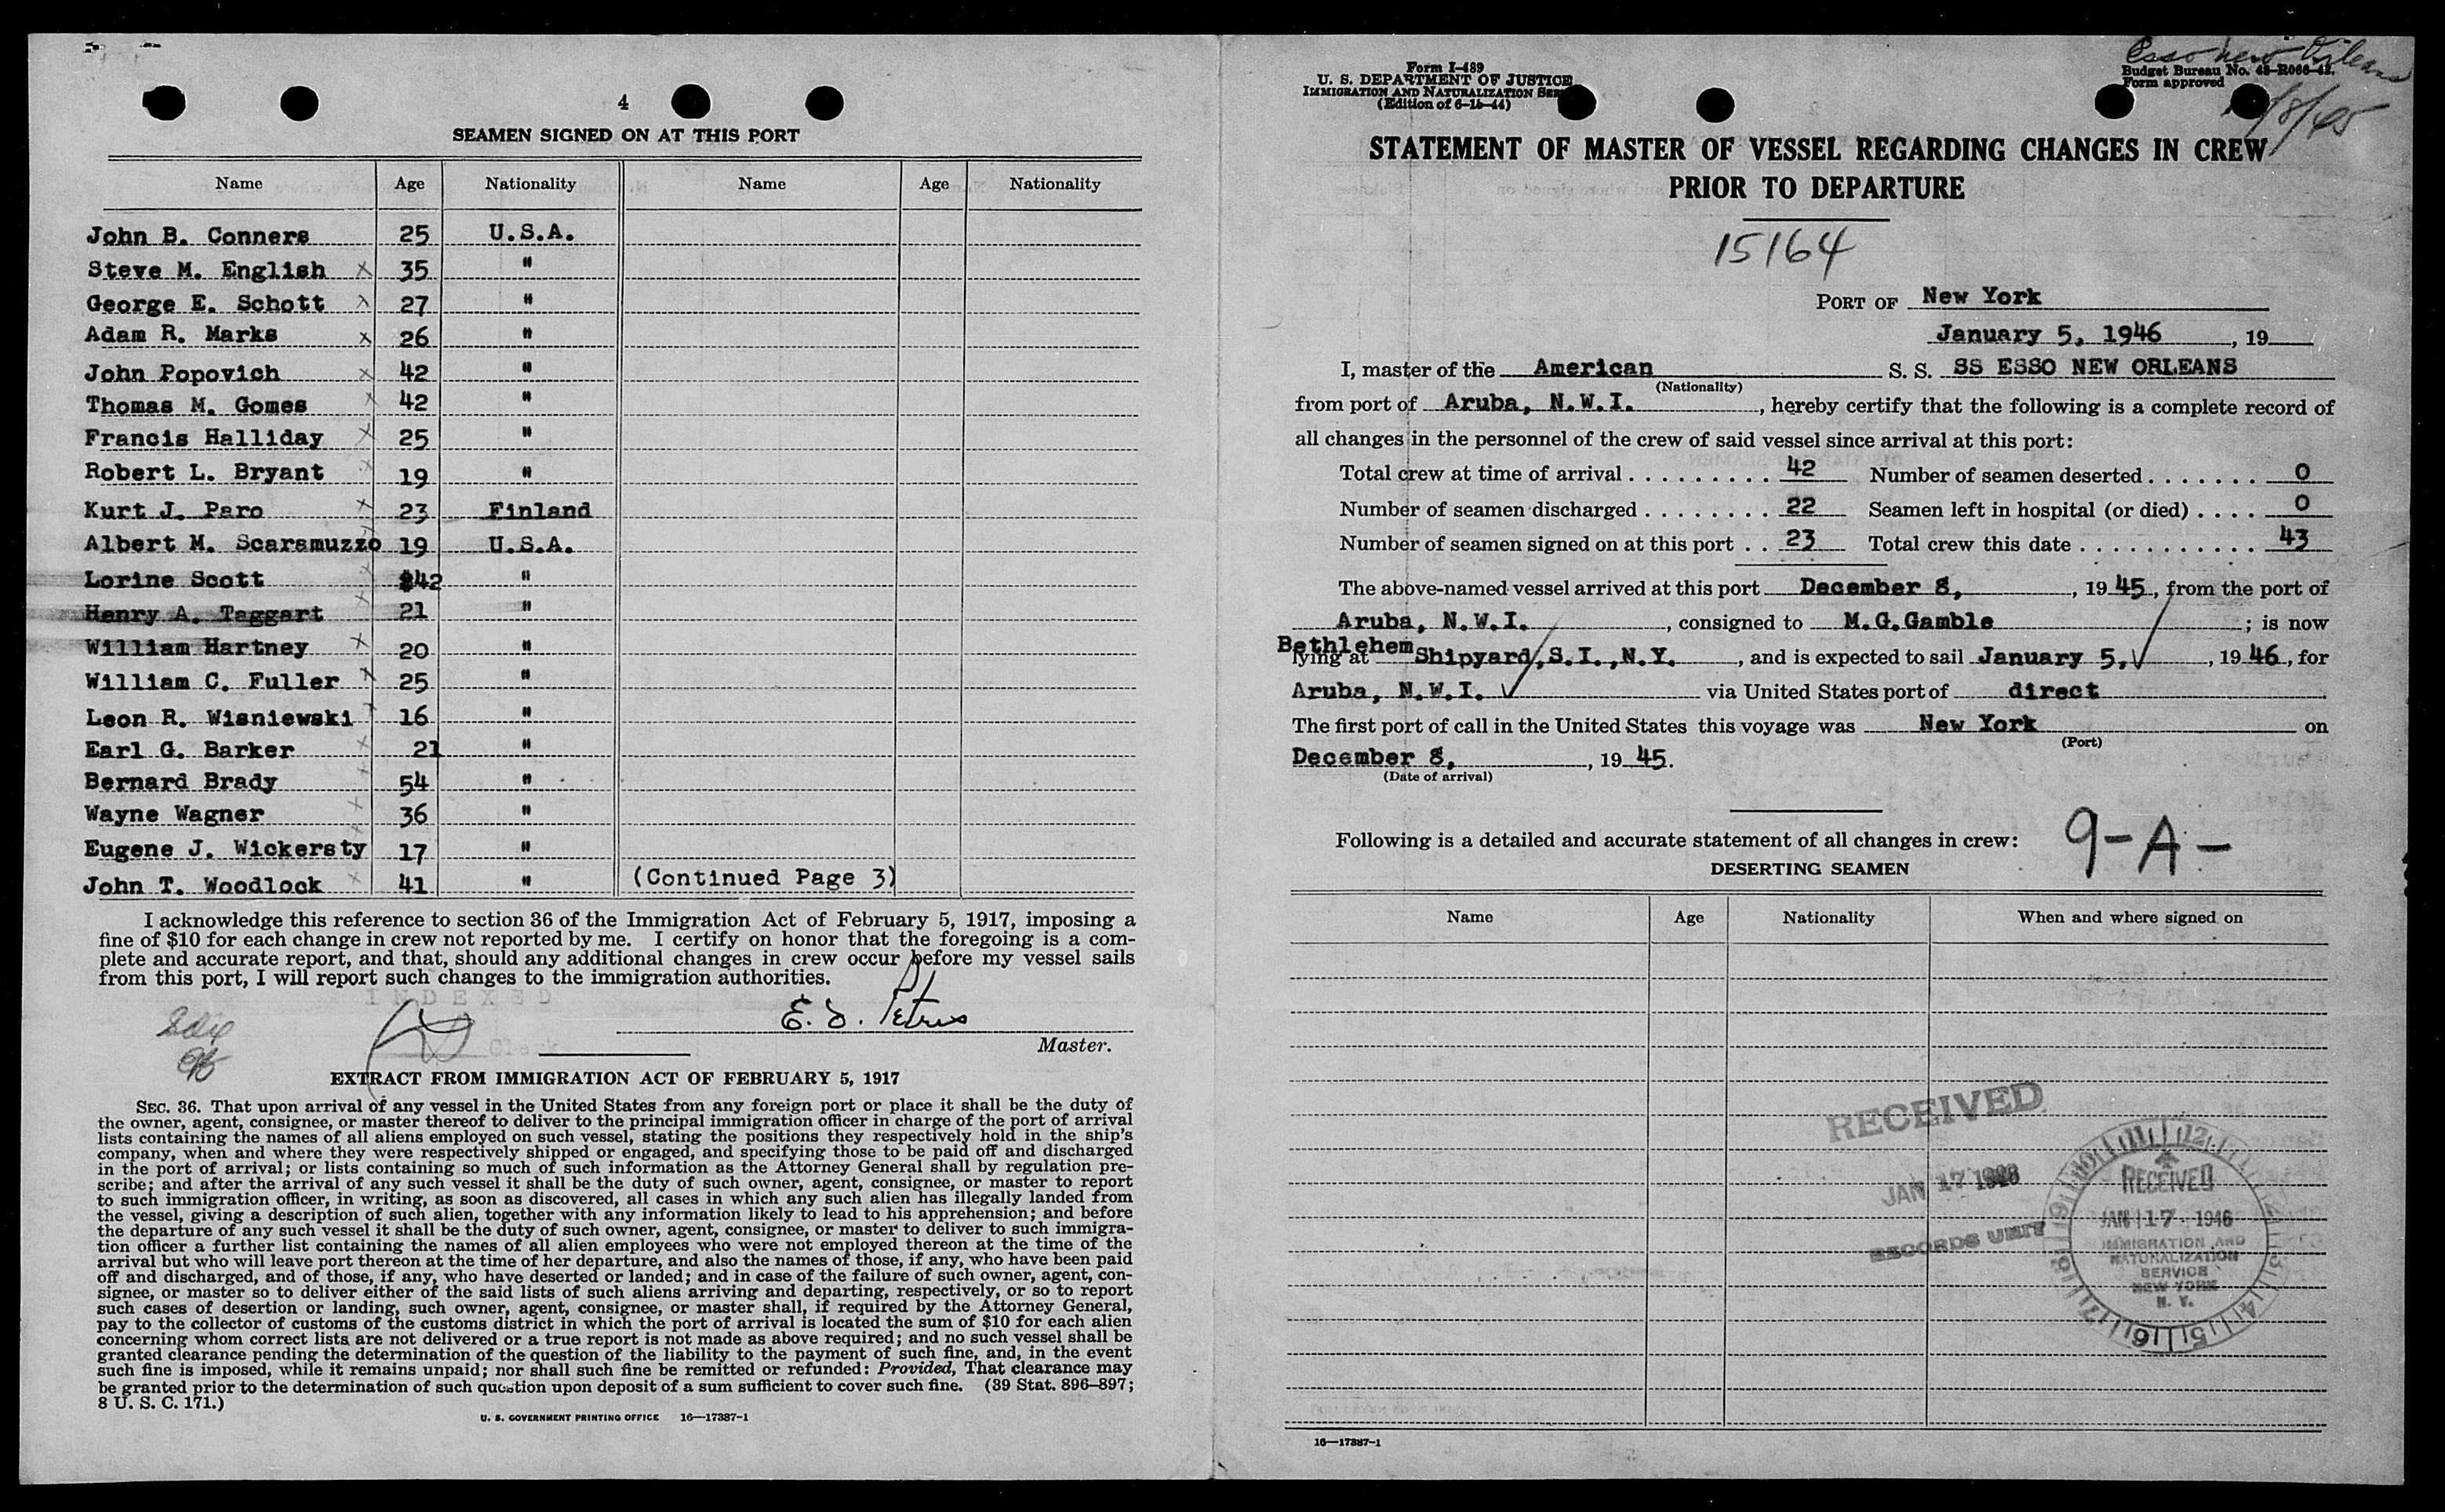 4
SEAMEN SIGNED ON AT THIS PORT
Name Age Nationality Name Age Nationality
John B. Conners 25 U.S.A.
Steve M. English x 35 "
George E. Schott x 27 "
Adam R. Marks x 26 "
John Popovich x 42 "
Thomas M. Gomes x 42 "
Francis Halliday x 25 "
Robert L. Bryant x 19 "
Kurt J. Paro x 23 Finland
Albert M. Scaramuzzo 19 U.S.A.
Lorine Scott x 42 "
Henry A. Taggart x 21 "
William Hartney x 20 "
William C. Fuller x 25 "
Leon R. Wisniewski x 16 "
Earl G. Barker x 21 "
Bernard Brady x 54 "
Wayne Wagner x 36 "
Eugene J. Wickersty 17 "
John T. Woodlock x 41 " (Continued Page 3)
I acknowledge this reference to section 36 of the Immigration Act of February 5, 1917, imposing a
fine of $10 for each change in crew not reported by me. I certify on honor that the foregoing is a com-
plete and accurate report, and that, should any additional changes in crew occur before my vessel sails
from this port, I will report such changes to the immigration authorities.
INDEXED
Clerk
Master.
EXTRACT FROM IMMIGRATION ACT OF FEBRUARY 5, 1917
SEC. 36. That upon arrival of any vessel in the United States from any foreign port or place it shall be the duty of
the owner, agent, consignee, or master thereof to deliver to the principal immigration officer in charge of the port of arrival
lists containing the names of all aliens employed on such vessel, stating the positions they respectively hold in the ship's
company, when and where they were respectively shipped or engaged, and specifying those to be paid off and discharged
in the port of arrival; or lists containing so much of such information as the Attorney General shall by regulation pre-
scribe; and after the arrival of any such vessel it shall be the duty of such owner, agent, consignee, or master to report
to such immigration officer, in writing, as soon as discovered, all cases in which any such alien has illegally landed from
the vessel, giving a description of such alien, together with any information likely to lead to his apprehension; and before
the departure of any such vessel it shall be the duty of such owner, agent, consignee, or master to deliver to such immigra-
tion officer a further list containing the names of all alien employees who were not employed thereon at the time of the
arrival but who will leave port thereon at the time of her departure, and also the names of those, if any, who have been paid
off and discharged, and of those, if any, who have deserted or landed; and in case of the failure of such owner, agent, con-
signee, or master so to deliver either of the said lists of such aliens arriving and departing, respectively, or so to report
such cases of desertion or landing, such owner, agent, consignee, or master shall, if required by the Attorney General,
pay to the collector of customs of the customs district in which the port of arrival is located the sum of $10 for each alien
concerning whom correct lists are not delivered or a true report is not made as above required; and no such vessel shall be
granted clearance pending the determination of the question of the liability to the payment of such fine, and, in the event
such fine is imposed, while it remains unpaid; nor shall such fine be remitted or refunded: Provided, That clearance may
be granted prior to the determination of such question upon deposit of a sum sufficient to cover such fine. (39 Stat. 896–897;
8 U. S. C. 171.)
U. S. GOVERNMENT PRINTING OFFICE 16—17387-1
Esso New Orleans
Form I-489
U. S. DEPARTMENT OF JUSTICE
IMMIGRATION AND NATURALIZATION
(Edition of 6-15-44)
Budget Bureau No. 43-R066-42.
Form approved
/8/45
STATEMENT OF MASTER OF VESSEL REGARDING CHANGES IN CREW
PRIOR TO DEPARTURE
15164
PORT OF New York
January 5, 1946, 19
I, master of the American S. S. SS ESSO NEW ORLEANS
(Nationality)
from port of Aruba, N.W.I., hereby certify that the following is a complete record of
all changes in the personnel of the crew of said vessel since arrival at this port:
Total crew at time of arrival . . . . . . . . . 42 Number of seamen deserted . . . . . . . 0
Number of seamen discharged . . . . . . . . 22 Seamen left in hospital (or died) . . . . 0
Number of seamen signed on at this port . . 23 Total crew this date . . . . . . . . . . . 43
The above-named vessel arrived at this port December 8, , 1945, from the port of
Aruba, N.W.I. , consigned to M.G.Gamble ; is now
lying at Bethlehem Shipyard,S.I.,N.Y. , and is expected to sail January 5, , 1946, for
Aruba, N.W.I. via United States port of direct
The first port of call in the United States this voyage was New York on
(Port)
December 8, , 1945.
(Date of arrival)
Following is a detailed and accurate statement of all changes in crew:
9-A-
DESERTING SEAMEN
Name Age Nationality When and where signed on
RECEIVED
JAN 17 1946
RECORDS UNIT
RECEIVED
JAN 17 1946
IMMIGRATION AND
NATURALIZATION
SERVICE
NEW YORK
N. Y.
16—17387-1